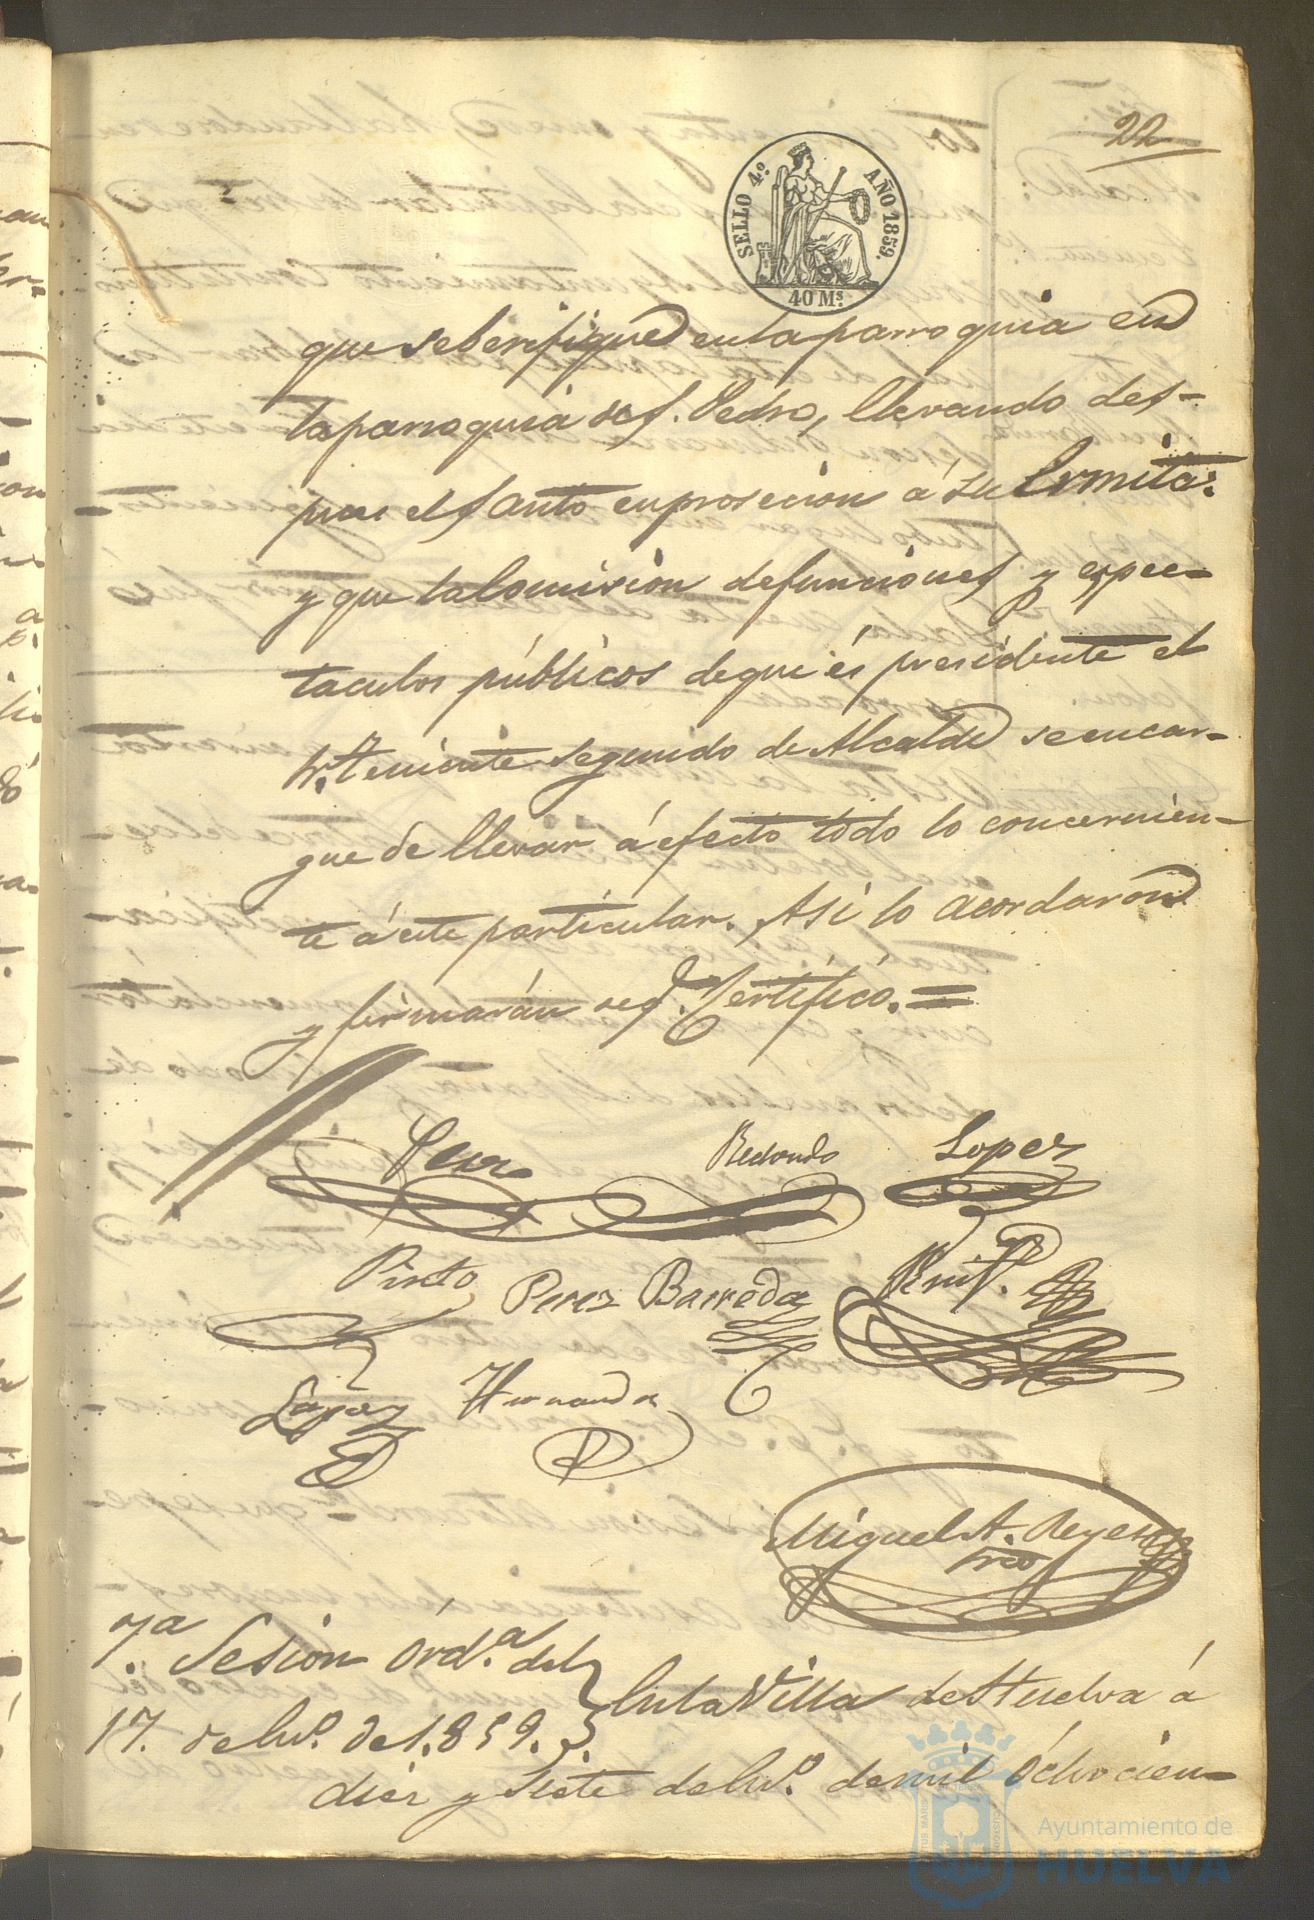 22
SELLO 4.º AÑO 1859.
40 M.s
que se berifique en la parroquia en
la parroquia de S. Pedro, llevando des-
pues el Santo en prosecion á su Ermita:
y que la Comision de funciones y espec-
taculos públicos de que és presidente el
Sr. Teniente segundo de Alcalde se encar-
gue de llevar á efecto todo lo concernien-
te á este particular. Así lo acordaron
y firmarán de q.e Certifico.=
Redondo Lopez
Pinto Perez Barreda
Lopez Hernandez
Miguel A. Reyes
Srio
7.ª Sesion Ord.ª del
17. de En.º de 1.859.
En la Villa de Huelva á
diez y siete de En.º de mil ochocien-
Ayuntamiento de
HUELVA